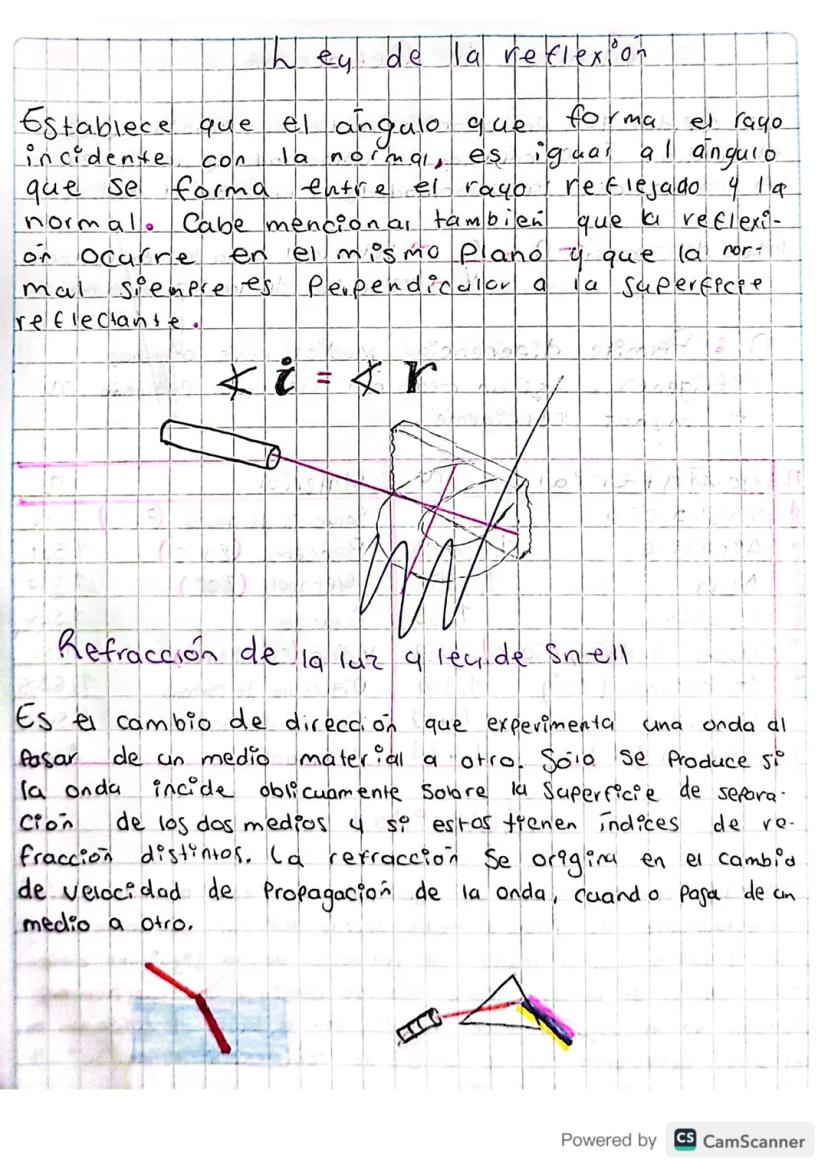 Ley de la reflexión
Establece que el ángulo que forma el rayo
incidente con la normal, es igual al ángulo
que se forma entre el rayo reflejado y la
normal. Cabe mencionar también que la reflexi-
ón ocurre en el mismo plano y que la nor-
mal siempre es Perpendicular a la superficie
reflectante.
∢ i = ∢ r
Refracción de la luz y ley de Snell
Es el cambio de dirección que experimenta una onda al
Pasar de un medio material a otro. Sólo se Produce si
la onda incide oblicuamente sobre la superficie de separa-
ción de los dos medios y si estos tienen índices de re-
fracción distintos. La refracción se origina en el cambio
de velocidad de Propagación de la onda, cuando pasa de un
medio a otro.
Powered by CS CamScanner